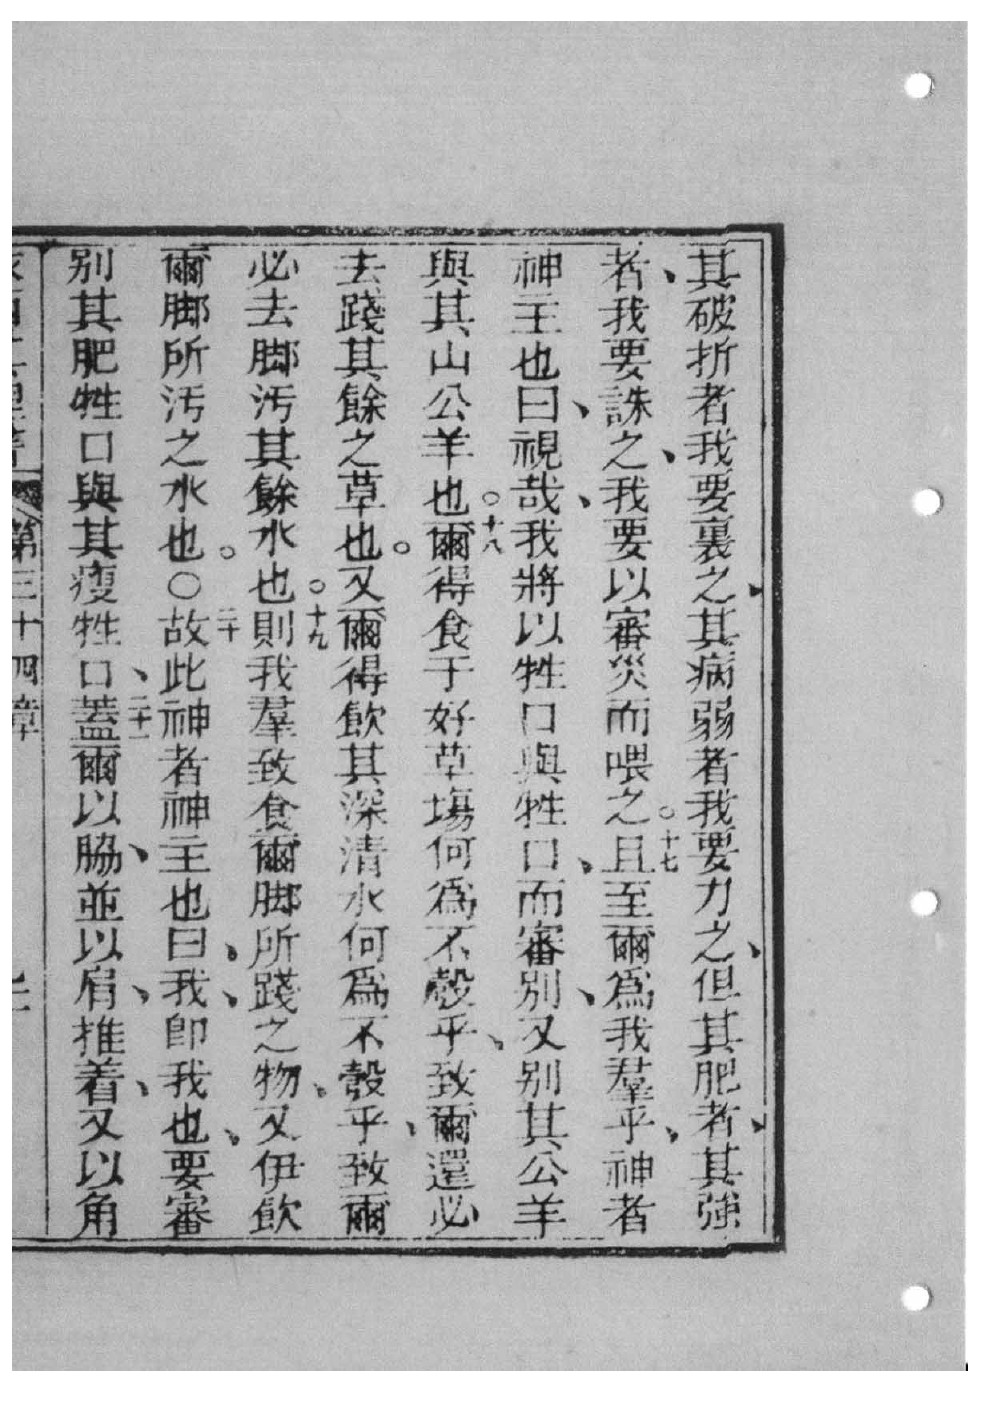 其破折者我要裏之、其病弱者我要力之、但其肥者、其強
者、我要誅之、我要以審災而喂之。十七且至爾爲我羣乎、神者
神主也曰、視哉、我將以牲口與牲口、而審別、又別其公羊
與其山公羊也。十八爾得食于好草塲何爲不彀乎、致爾還必
去踐其餘之草也。又爾得飲其深清水何爲不彀乎、致爾
必去脚汚其餘水也。十九則我羣致食爾脚所踐之物、又伊飲
爾脚所汚之水也。○二十故此神者神主也曰、我、卽我也、要審
別其肥牲口與其瘦牲口、二十一蓋爾以脇、並以肩、推着、又以角
第三十四章